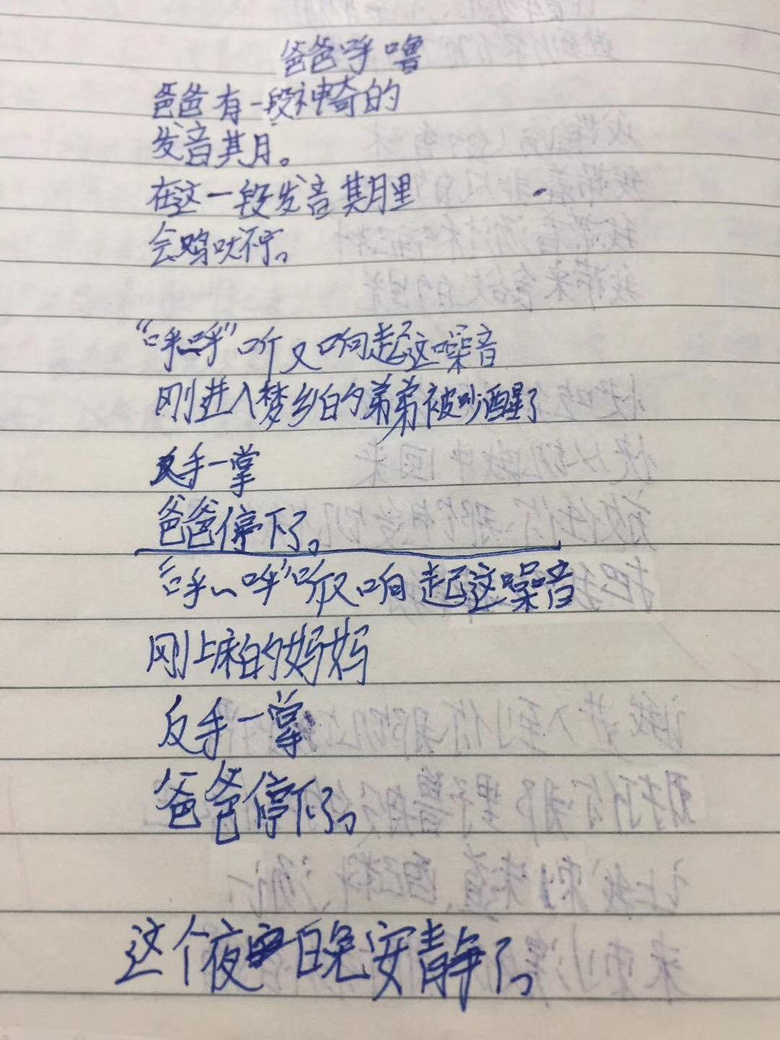 爸爸呼噜
爸爸有一段神奇的
发音其月。
在这一段发音期里
会鸣吠不宁。
“呼~呼”听又响起这噪音
刚进入梦乡的弟弟被吵醒了
反手一掌
爸爸停下了。
“呼~呼”听又响起这噪音
刚上床的妈妈
反手一掌
爸爸停下了。
这个夜晚安静了。